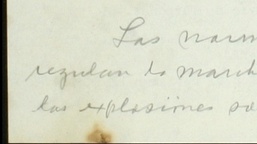 Las norm
regulan la march
las explosiones so